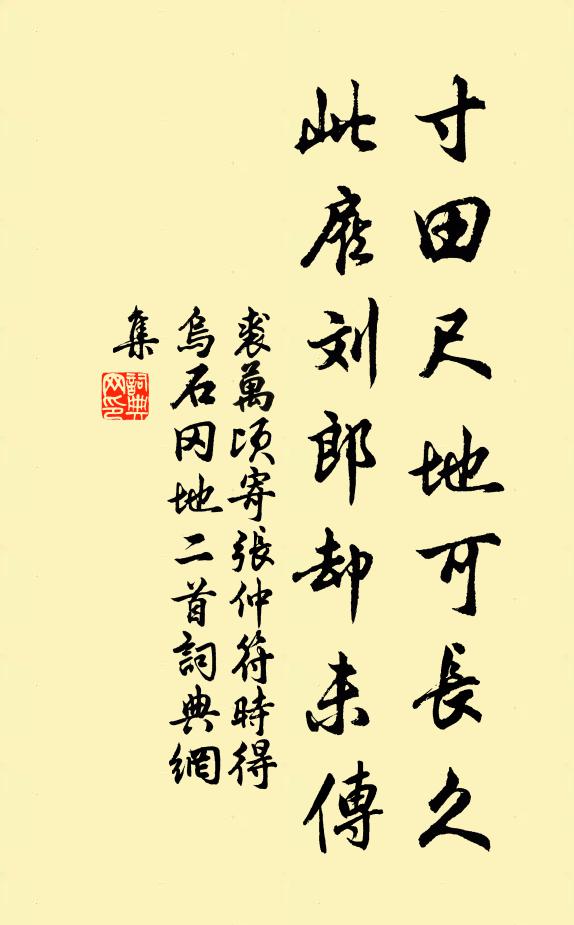 寸田尺地可長久
此雁刘郎却未傳
裘萬頃寄張仲符時得
烏石冈地二首詞典網
集
詞典
网印